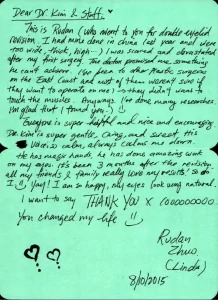 Dear Dr. Kim & Staff,
This is Rudan (who went to you for double eyelid
revision. I had mine done in china last year and were
too wide, thick, high...) I was scared and devastated
after my first surgery. The doctor promised me something
he can't achieve. I've been to other plastic surgeons
on the East Coast and most of them weren't sure if
they want to operate on me) as they didn't want to
touch the muscles. Anyways. I've done many researches
I'm glad that I found you. :)
Everyone is super helpful and nice and encouraging
Dr. Kim is super gentle, caring, and sweet. His
voice is calm, always calms me down.
He has magic hands, he has done amazing work
on my eyes. It's been 3 months after the revision,
all my friends & family really love my results! So do
I :) Yay! I am so happy, my eyes look very natural.
I want to say THANK YOU X 1000000000
You changed my life :)
Rudan
Zhuo
(Linda)
8/10/2015